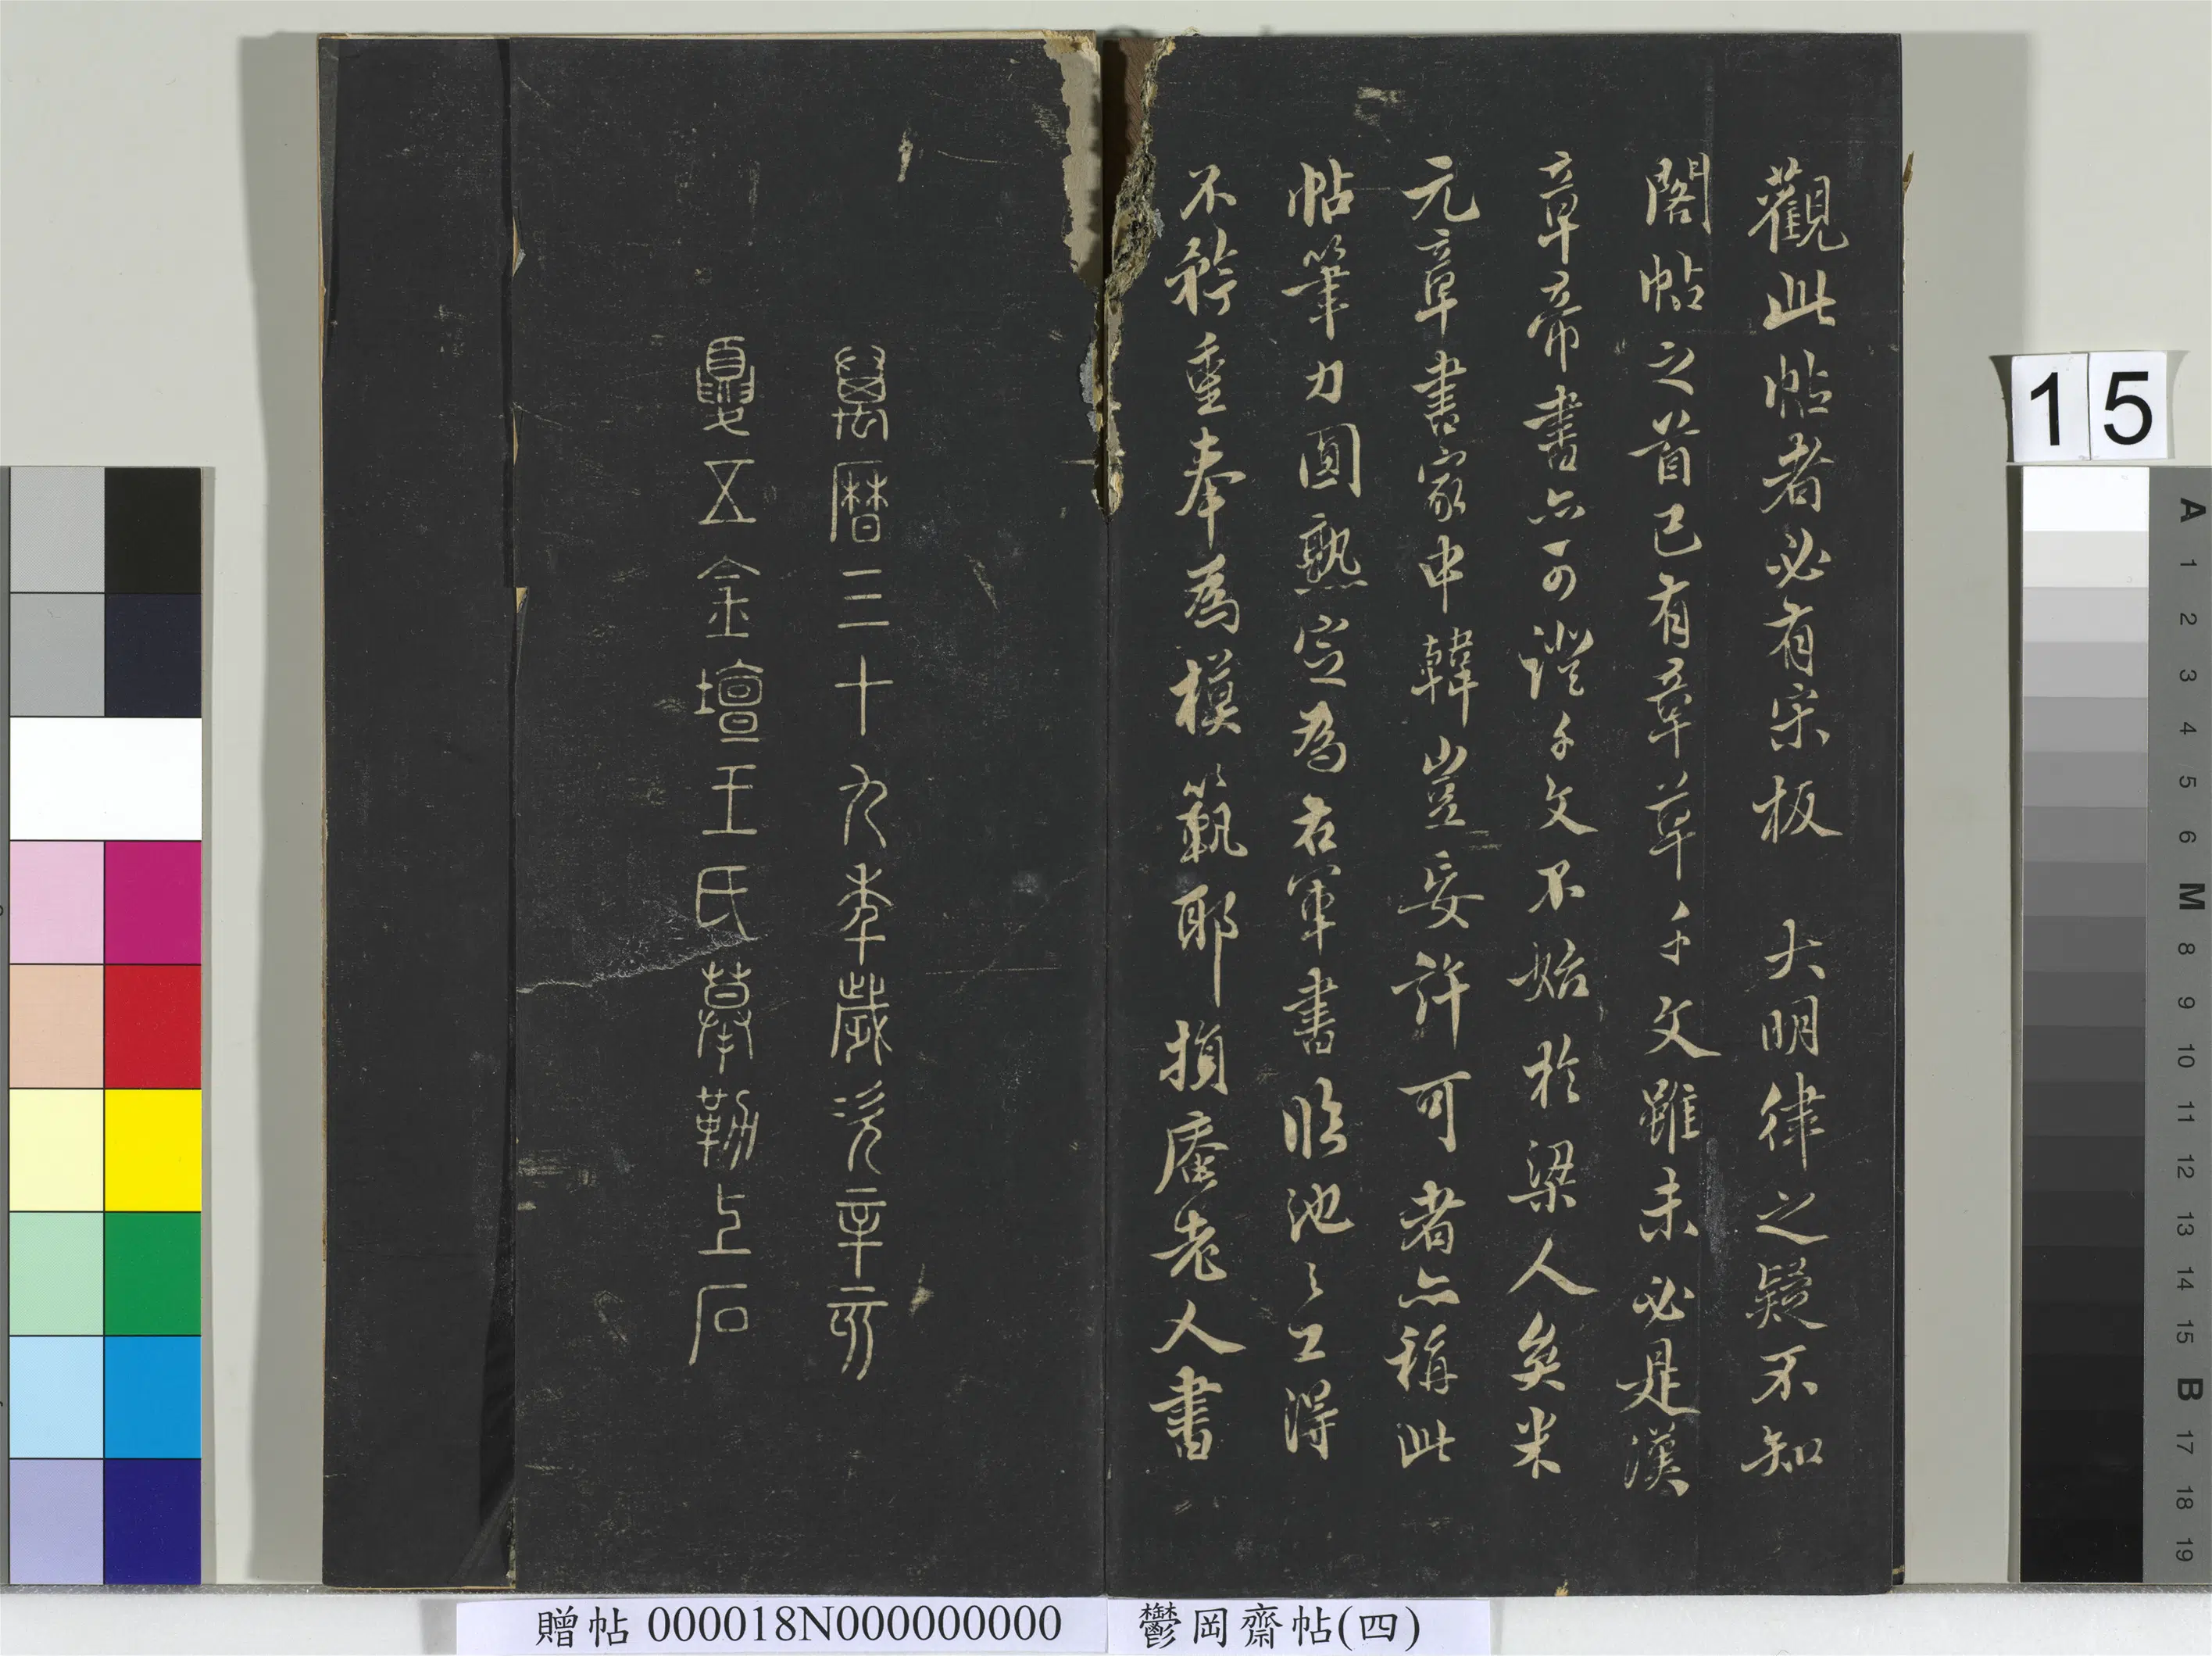 觀此帖者必有宋板　大明律之疑不知
閣帖之首已有章草千文雖未必是漢
章帝書亦可證千文不始於梁人矣米
元章書家中韓豈妄許可者亦稱此
帖筆力圓熟定為右軍書臨池之工得
不矜重奉為模範耶損菴老人書
萬曆三十九年歲次辛亥
夏五金壇王氏摹勒上石
贈帖 000018N000000000
鬱岡齋帖(四)
15
A 1 2 3 4 5 6 M 8 9 10 11 12 13 14 15 B 17 18 19